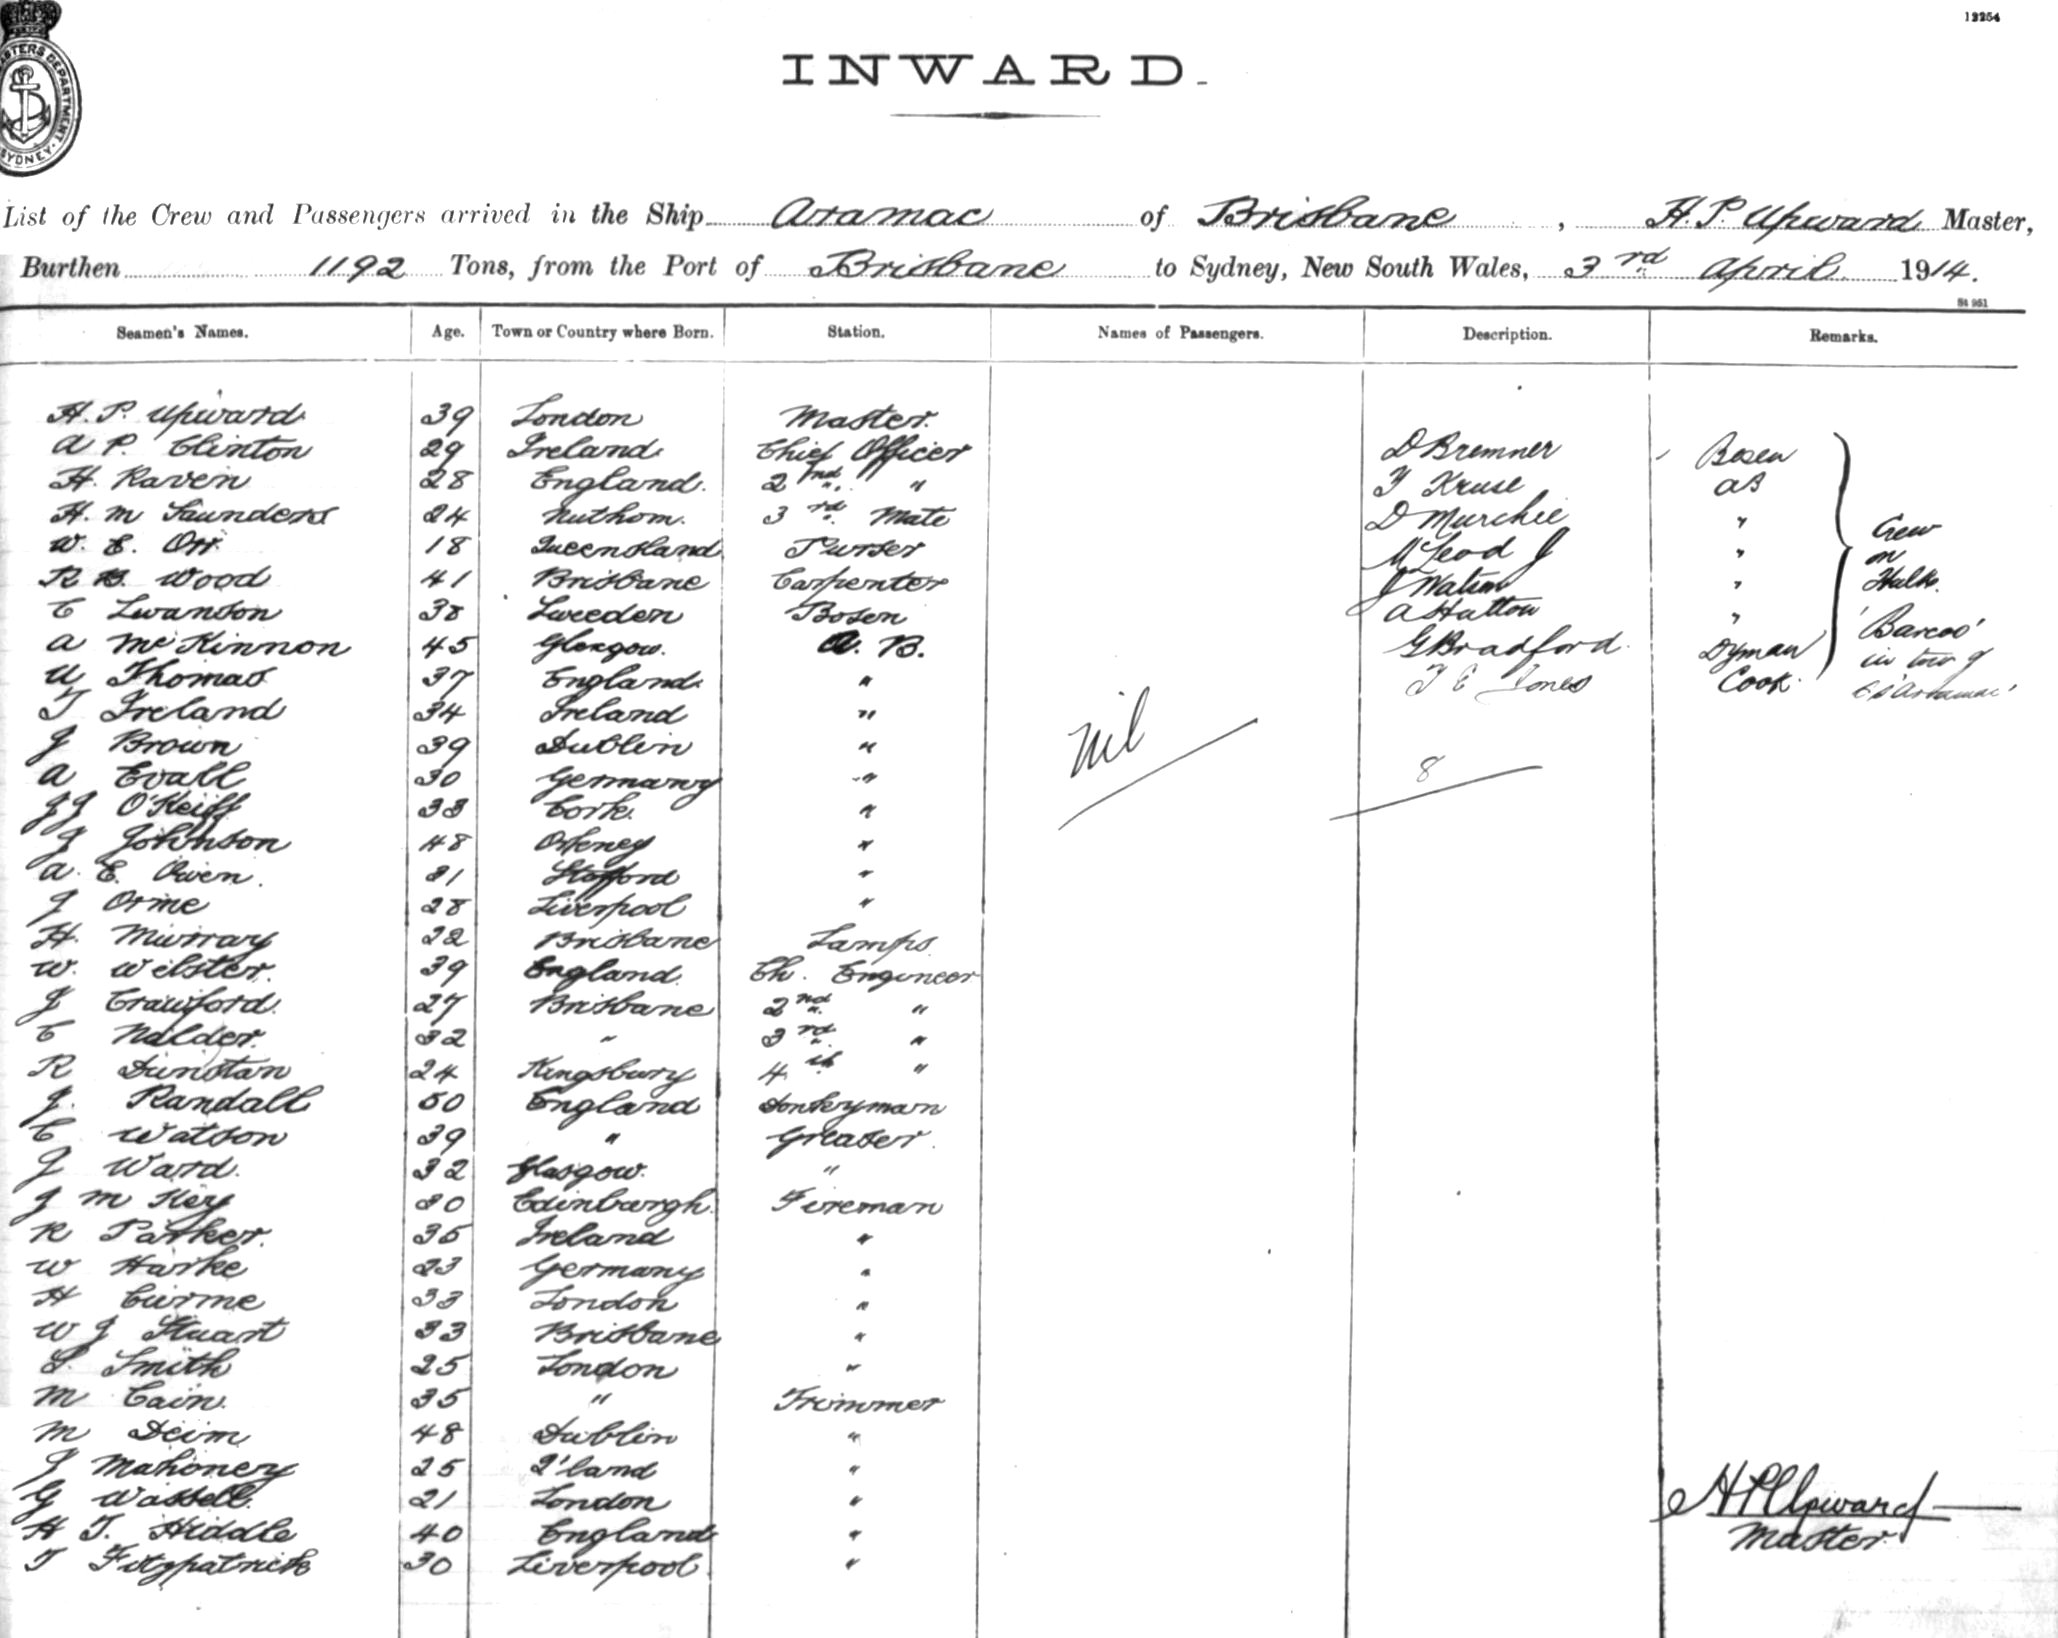 12254
MASTERS DEPARTMENT
SYDNEY
INWARD.
List of the Crew and Passengers arrived in the Ship Aramac of Brisbane, H. P. Upward Master,
Burthen 1192 Tons, from the Port of Brisbane to Sydney, New South Wales, 3rd April 1914.
St 951
Seamen's Names. Age. Town or Country where Born. Station. Names of Passengers. Description. Remarks.
H. P. Upward 39 London Master.
A P. Clinton 29 Ireland. Chief Officer D Bremner Bosen
H. Raven 28 England. 2nd " Kruse AB
H. M Saunders 24 3rd Mate D Murchie "
W. E. Orr 18 Queensland Purser McLeod J "
R B. Wood 41 Brisbane Carpenter J Watson "
C Swanson 38 Sweeden Bosen A Hatton "
A McKinnon 45 Glasgow. A. B. G Bradford. Dyman
Crew
on
Hulk.
'Barcoo'
in tow of
'Aramac'
U Thomas 37 England. " Jones Cook.
T Ireland 34 Ireland "
J Brown 39 Dublin "
Nil
A Evall 30 Germany "
8
J J O'Keiff 33 Cork. "
J Johnson 48 Orkney "
A. E. Owen. 31 Stafford "
J Orme 28 Liverpool "
H. Murray 22 Brisbane Lamps
W. Webster. 39 England. Ch. Engineer
J Crawford. 27 Brisbane 2nd "
C Nalder. 32 " 3rd "
R Dunstan 24 Kingsbury 4th "
J. Randall 50 England Donkeyman
C Watson 39 " Greaser.
J Ward. 32 Glasgow. "
J M Key 30 Edinburgh. Fireman
R Parker. 35 Ireland "
W Harke 23 Germany "
H Curme 33 London "
W J Stuart 33 Brisbane "
S. Smith 25 London "
M Cain. 35 " Trimmer
M Deim 48 Dublin "
J Mahoney 25 Q'land "
G Wassell. 21 London "
H T. Hiddle 40 England "
T Fitzpatrick 30 Liverpool. "
H P Upward
Master